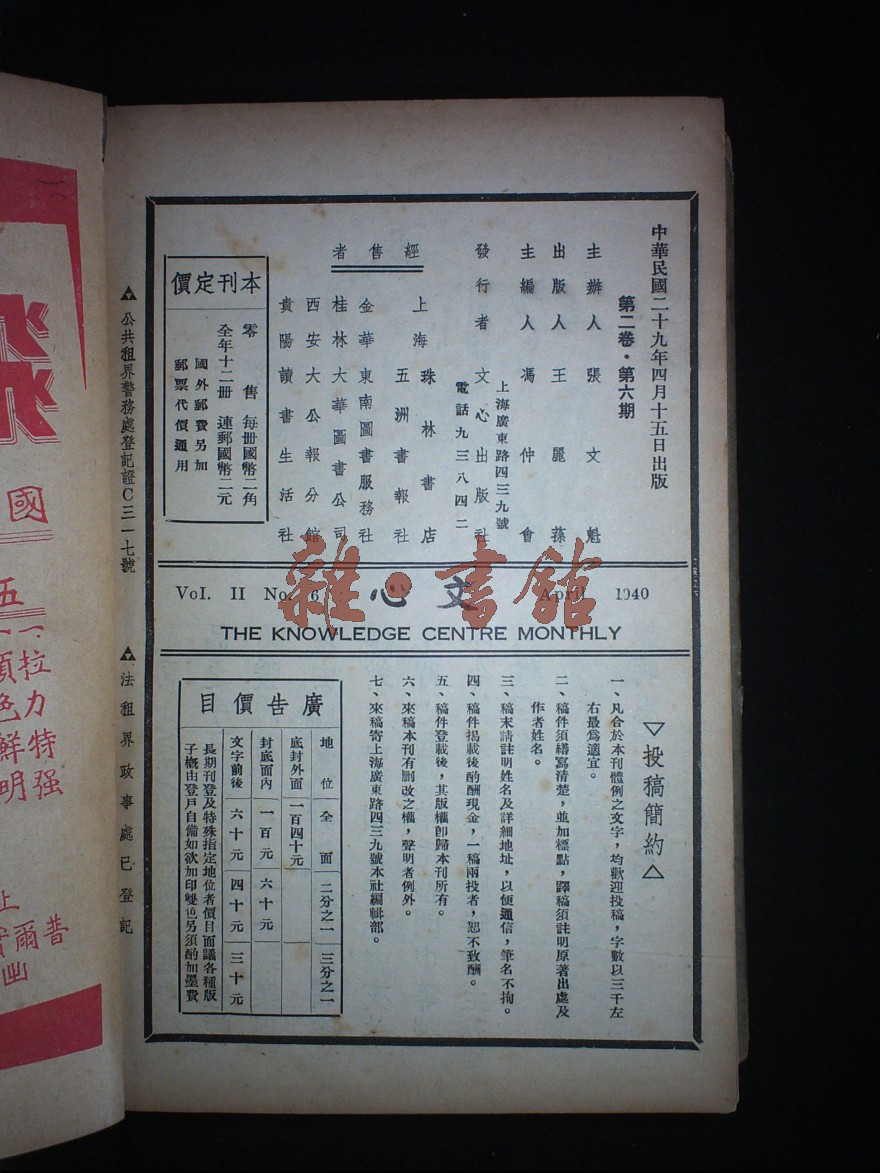 中華民國二十九年四月十五日出版
第二卷·第六期
主辦人 張文魁
出版人 王麗蓀
主編人 馮仲會
上海廣東路四三九號
發行者 文心出版社
電話九三八四二
經售者
上海 珠林書店
五洲書報社
金華東南圖書服務社
桂林大華圖書公司
西安大公報分館
貴陽讀書生活社
本刊定價
零售 每冊國幣二角
全年十二冊 連郵國幣二元
國外郵費另加
郵票代價通用
▲ 公共租界警務處登記證C三一七號
▲ 法租界政事處已登記
Vol. II No. 6 心文 April 1940
THE KNOWLEDGE CENTRE MONTHLY
雜·書館
▽投稿簡約△
一、凡合於本刊體例之文字，均歡迎投稿，字數以三千左
右最爲適宜。
二、稿件須繕寫清楚，並加標點，譯稿須註明原著出處及
作者姓名。
三、稿末請註明姓名及詳細地址，以便通信，筆名不拘。
四、稿件揭載後酌酬現金，一稿兩投者，恕不致酬。
五、稿件登載後，其版權卽歸本刊所有。
六、來稿本刊有刪改之權，聲明者例外。
七、來稿寄上海廣東路四三九號本社編輯部。
廣告價目
地位 全面 二分之一 三分之一
底封外面 一百四十元
封底面內 一百元 六十元
文字前後 六十元 四十元 三十元
長期刊登及特殊指定地位者價目面議各種版
子概由登戶自備如欲加印雙色另須酌加墨費
國
五
拉
力
特
强
色鮮明
普爾